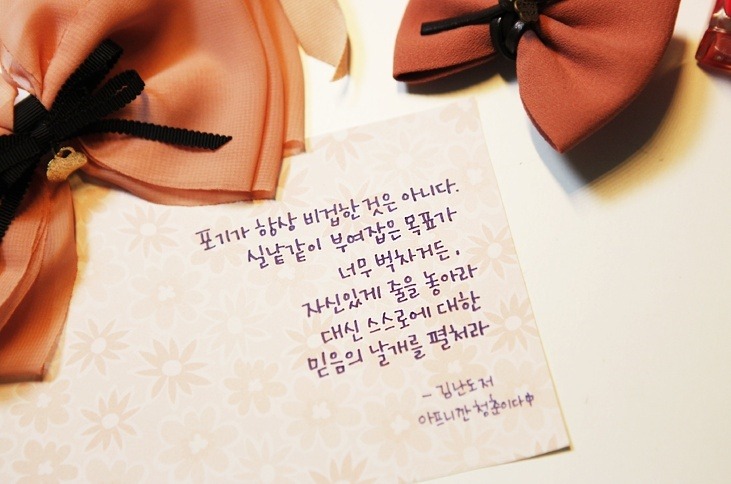 포기가 항상 비겁한 것은 아니다.
실낱같이 부여잡은 목표가
너무 벅차거든,
자신있게 줄을 놓아라
대신 스스로에 대한
믿음의 날개를 펼쳐라
- 김난도 저
아프니깐 청춘이다 中